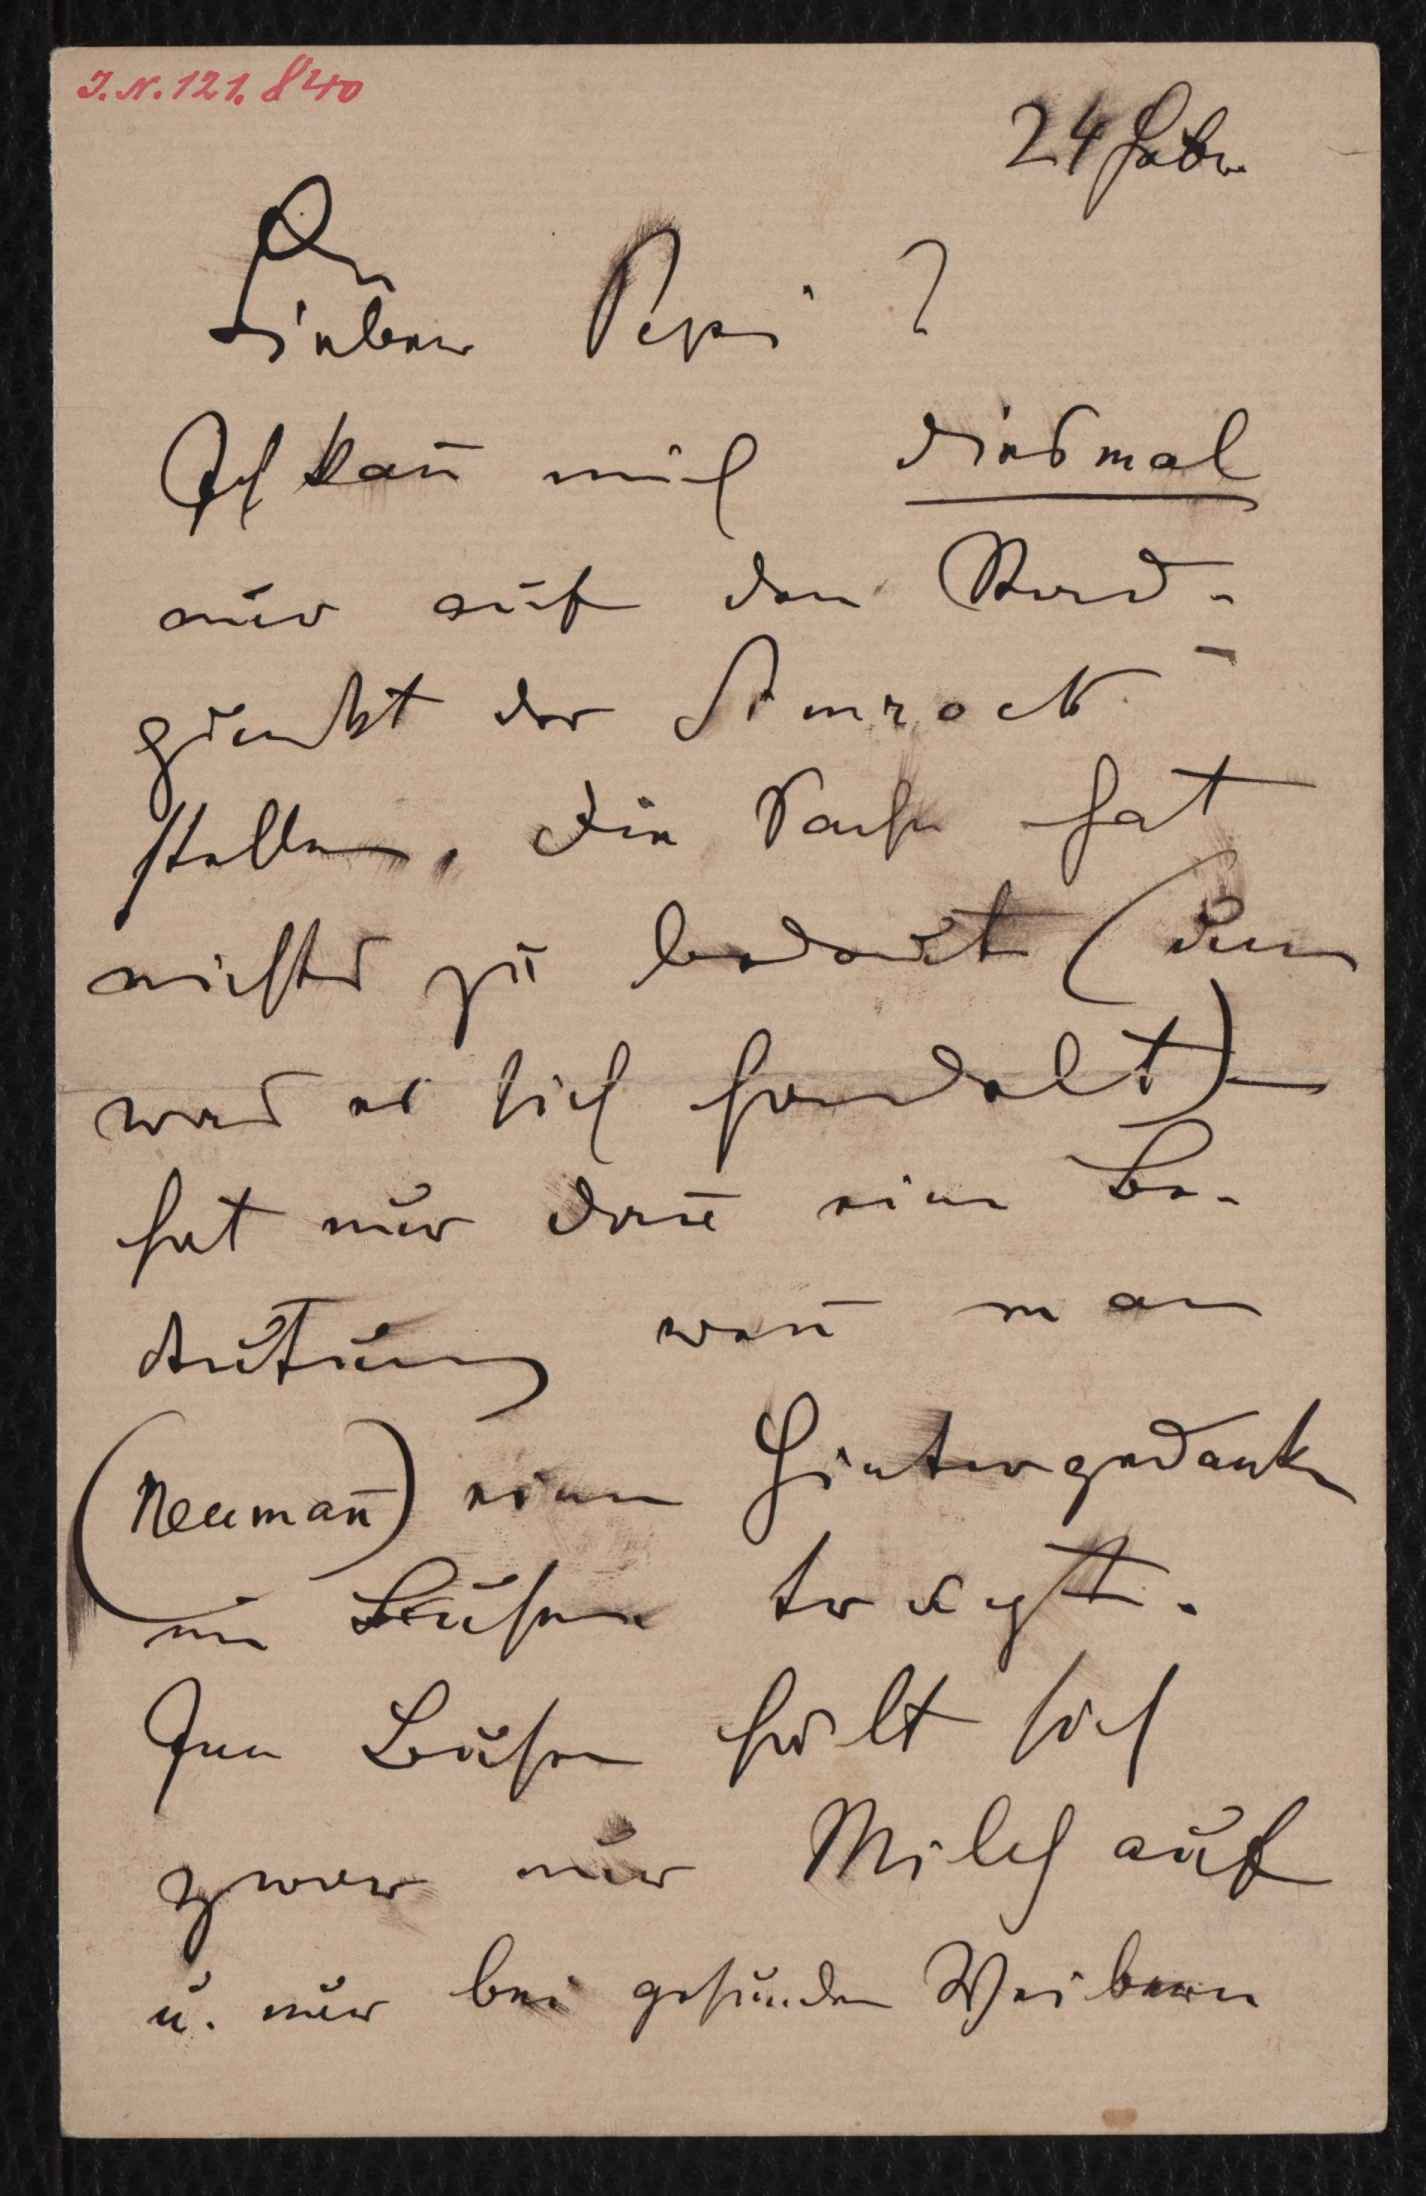 I. N. 121.840
24 Febr
Du
Lieber Pepi ?
Ich kan̄ mich diesmal
nur auf den Stand-
punkt der Simrock
stellen. Die Sache hat
nichts zu bedeuten (um
was es sich handelt) –
hat nur dan̄ eine Be-
deutung wen̄ man
(Neuman̄) einen Hintergedanken
im Busen trägt.
Im Busen hält sich
zwar nur Milch auf
u. nur bei gesunden Weibern